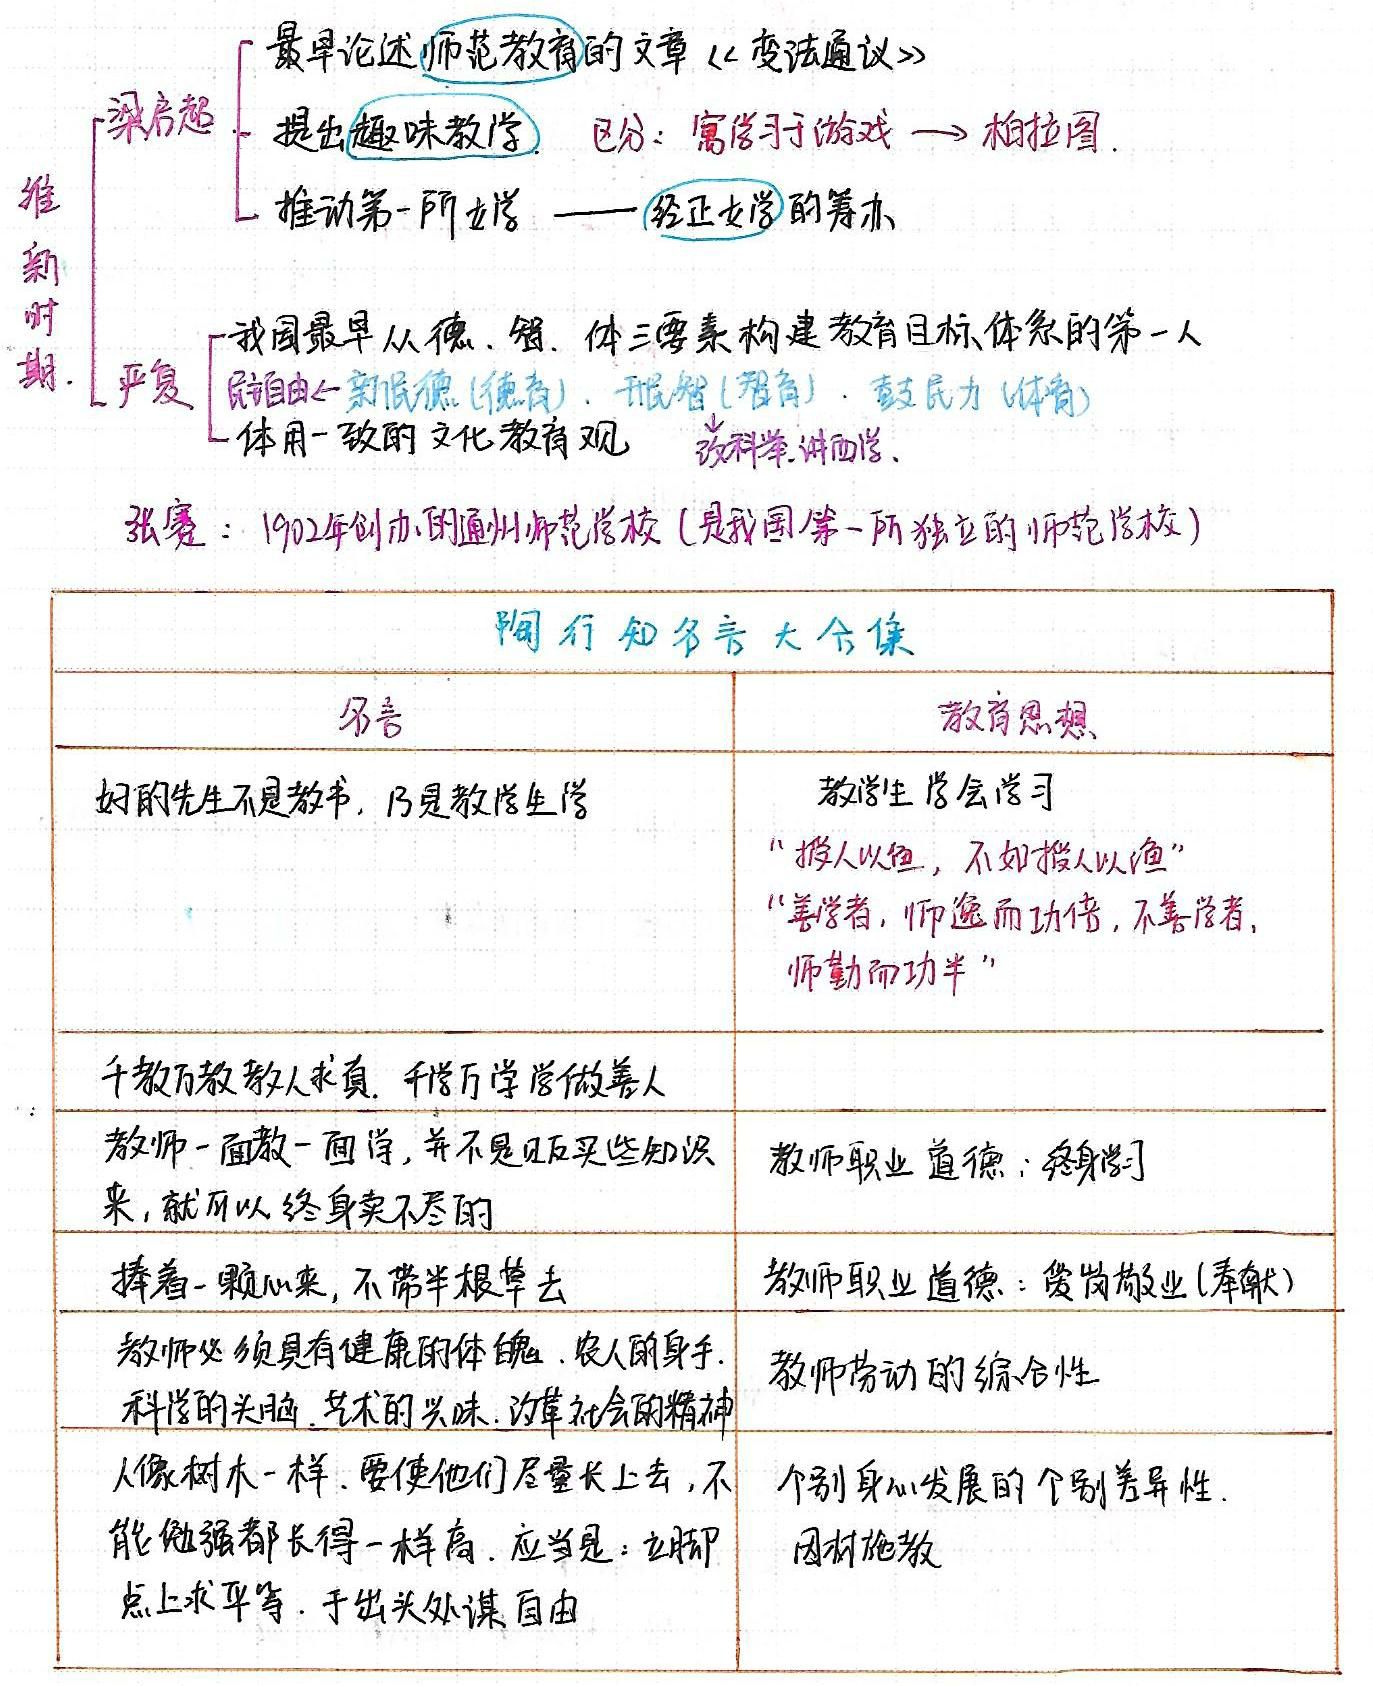 维新时期.
梁启超
最早论述师范教育的文章《变法通议》
提出趣味教学. 区分：寓学习于游戏 → 柏拉图.
推动第一所女学 —— 经正女学的筹办
严复
我国最早从德、智、体三要素构建教育目标体系的第一人
民主自由←新民德(德育)、开民智(智育)、鼓民力(体育)
体用一致的文化教育观 ↓改科举.讲西学.
张謇：1902年创办的通州师范学校(是我国第一所独立的师范学校)
陶行知名言大合集
名言 教育思想
好的先生不是教书，乃是教学生学 教学生学会学习
“授人以鱼，不如授人以渔”
“善学者，师逸而功倍，不善学者，
师勤而功半”
千教万教教人求真.千学万学学做善人
教师一面教一面学，并不是贩买些知识
来，就可以终身卖不尽的
教师职业道德：终身学习
捧着一颗心来，不带半根草去 教师职业道德：爱岗敬业(奉献)
教师必须具有健康的体魄.农人的身手.
科学的头脑.艺术的兴味.改革社会的精神
教师劳动的综合性
人像树木一样.要使他们尽量长上去，不
能勉强都长得一样高.应当是：立脚
点上求平等.于出头处谋自由
个别身心发展的个别差异性.
因材施教